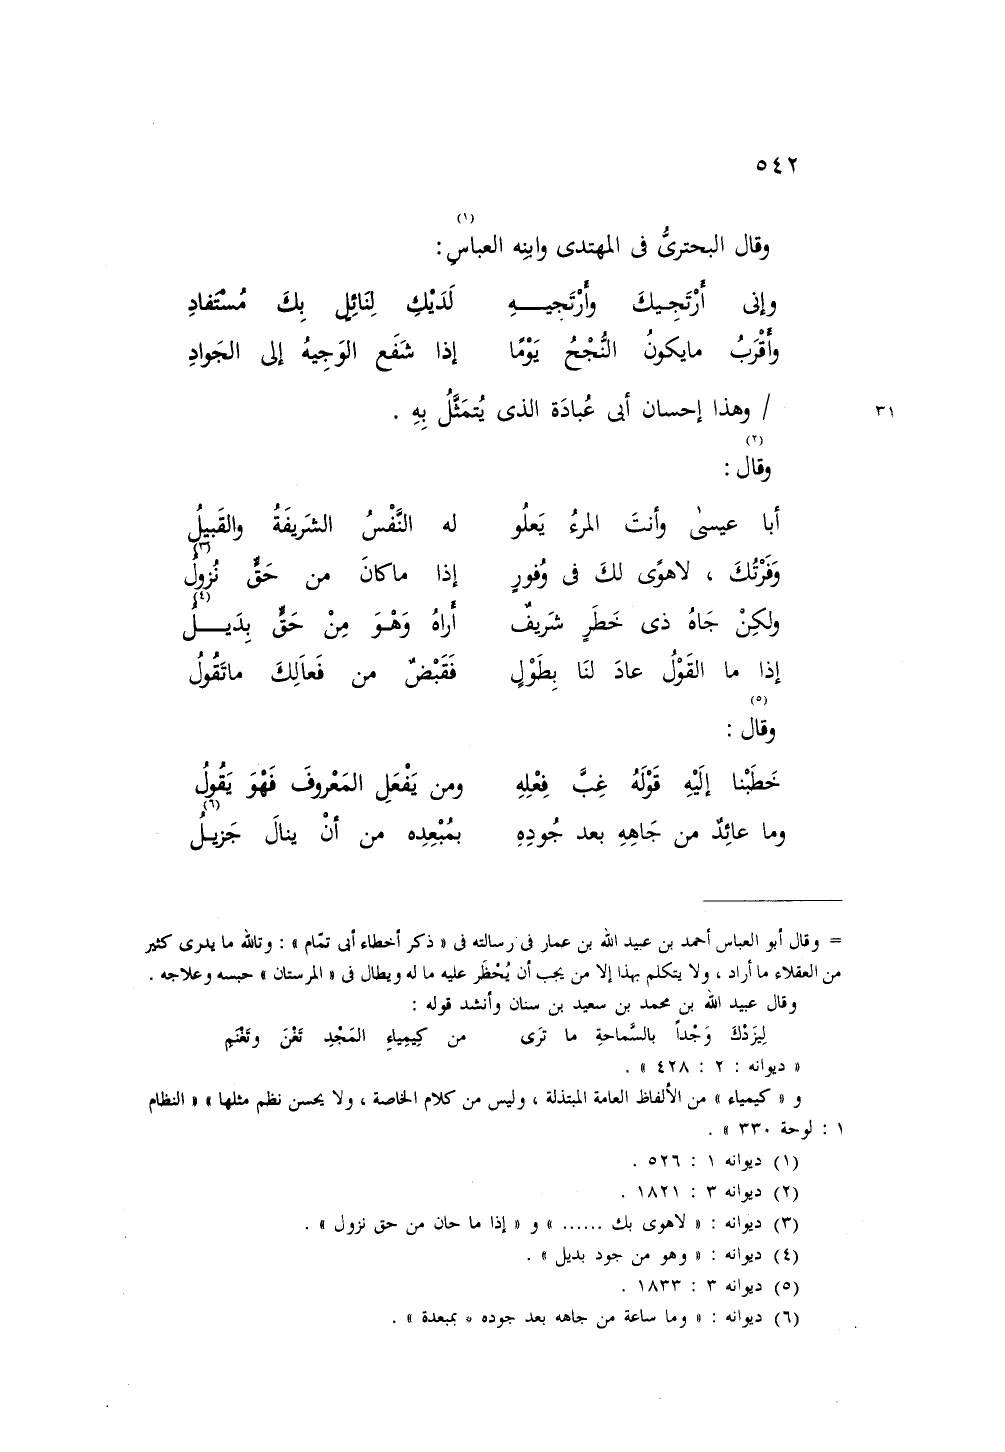 ٥٤٢
وقال البحترىُّ فى المهتدى وابنِه العباسِ (١) :
وإنى أَرْتَجِيكَ وأَرْتَجيـــهِ لَدَيْكِ لِنَائِلٍ بِكَ مُسْتَفادِ
وأَقْرَبُ مايكونُ النُّجْحُ يَوْمًا إذا شَفَع الوَجِيهُ إلى الجَوادِ
٣١ / وهذا إحسان أبى عُبادَة الذى يُتمَثَّلُ بِهِ .
وقال (٢) :
أبا عيسىٰ وأنتَ المرءُ يَعلُو له النَّفْسُ الشرَيفَةُ والقَبيلُ
وَفَرْتُكَ ، لاهوًى لكَ فى وُفورٍ إذا ماكانَ من حَقٍّ نُزولُ (٣)
ولكِنْ جَاهُ ذى خَطَرٍ شَريفٌ أَراهُ وَهْوَ مِنْ حَقٍّ بِدَيـــلُ (٤)
إذا ما القَوْلُ عادَ لنَا بِطَوْلٍ فَقَبْضٌ من فَعاَلِكَ ماتَقُولُ
وقال (٥) :
خَطَبْنا إلَيْهِ قَوْلَهُ غِبَّ فِعْلِهِ ومن يَفْعَلِ المَعْروفَ فَهْوَ يَقُولُ
وما عائِدٌ من جَاهِهِ بعد جُودِهِ بمُبْعِدِه من أنْ ينالَ جَزيـلُ (٦)
= وقال أبو العباس أحمد بن عبيد الله بن عمار فى رسالته فى « ذكر أخطاء أبى تمّام » : وتالله ما يدرى كثير
من العقلاء ما أراد ، ولا يتكلم بهذا إلا من يجب أن يُحْظَر عليه ما له ويطال فى « المرستان » حبسه وعلاجه .
وقال عبيد الله بن محمد بن سعيد بن سنان وأنشد قوله :
لِيَزدْكَ وَجْداً بالسَّماحةِ ما تَرَى من كِيمِياءِ المَجْدِ تَغْنَ وتَغْنَمِ
« ديوانه : ٢ : ٤٢٨ » .
و « كيمياء » من الألفاظ العامة المبتذلة ، وليس من كلام الخاصة ، ولا يحسن نظم مثلها » « النظام
١ : لوحة ٣٣٠ » .
(١) ديوانه ١ : ٥٢٦ .
(٢) ديوانه ٣ : ١٨٢١ .
(٣) ديوانه : « لاهوى بك ...... » و « إذا ما حان من حق نزول » .
(٤) ديوانه : « وهو من جود بديل » .
(٥) ديوانه ٣ : ١٨٣٣ .
(٦) ديوانه : « وما ساعة من جاهه بعد جوده * بمبعدة » .